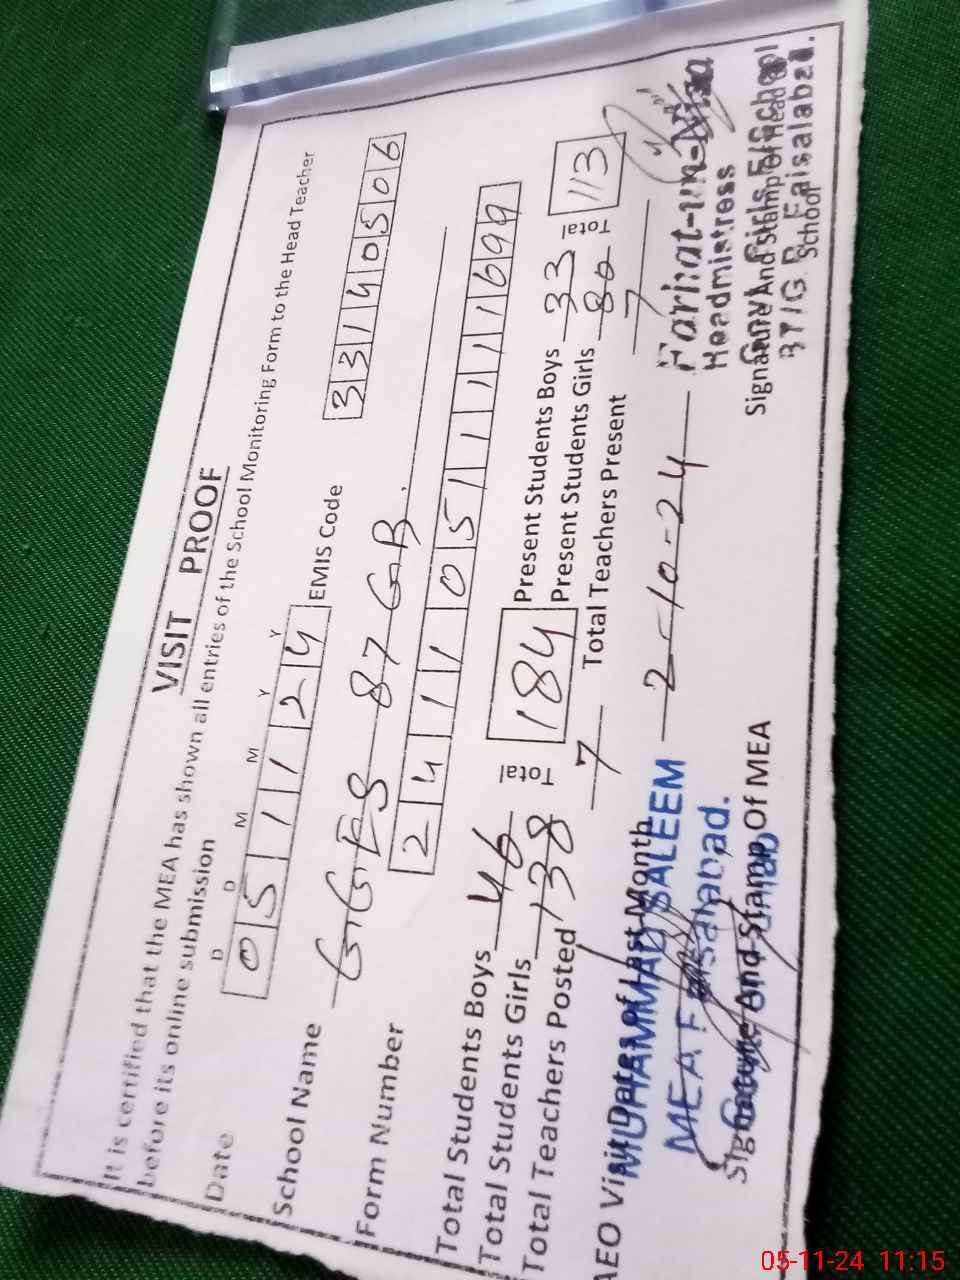 VISIT PROOF
It is certified that the MEA has shown all entries of the School Monitoring Form to the Head Teacher
before its online submission
D D M M Y Y
Date 0 5 1 1 2 4 EMIS Code 3 3 1 4 0 5 0 6
School Name GGES 87 GB.
Form Number 2 4 1 1 0 5 1 1 1 1 6 9 9
Total Students Boys 46 Total 184 Present Students Boys 33 Total 113
Total Students Girls 138 Present Students Girls 80
Total Teachers Posted 7 Total Teachers Present 7
AEO Visit Dates of Last Month 2-10-24
MUHAMMAD SALEEM
MEA Faisalabad.
Signature And Stamp Of MEA
Farhat-un-Nisa
Headmistress
Govt Girls E/School
87/G.B Faisalabad.
Signature And Stamp Of Head
School
05-11-24 11:15